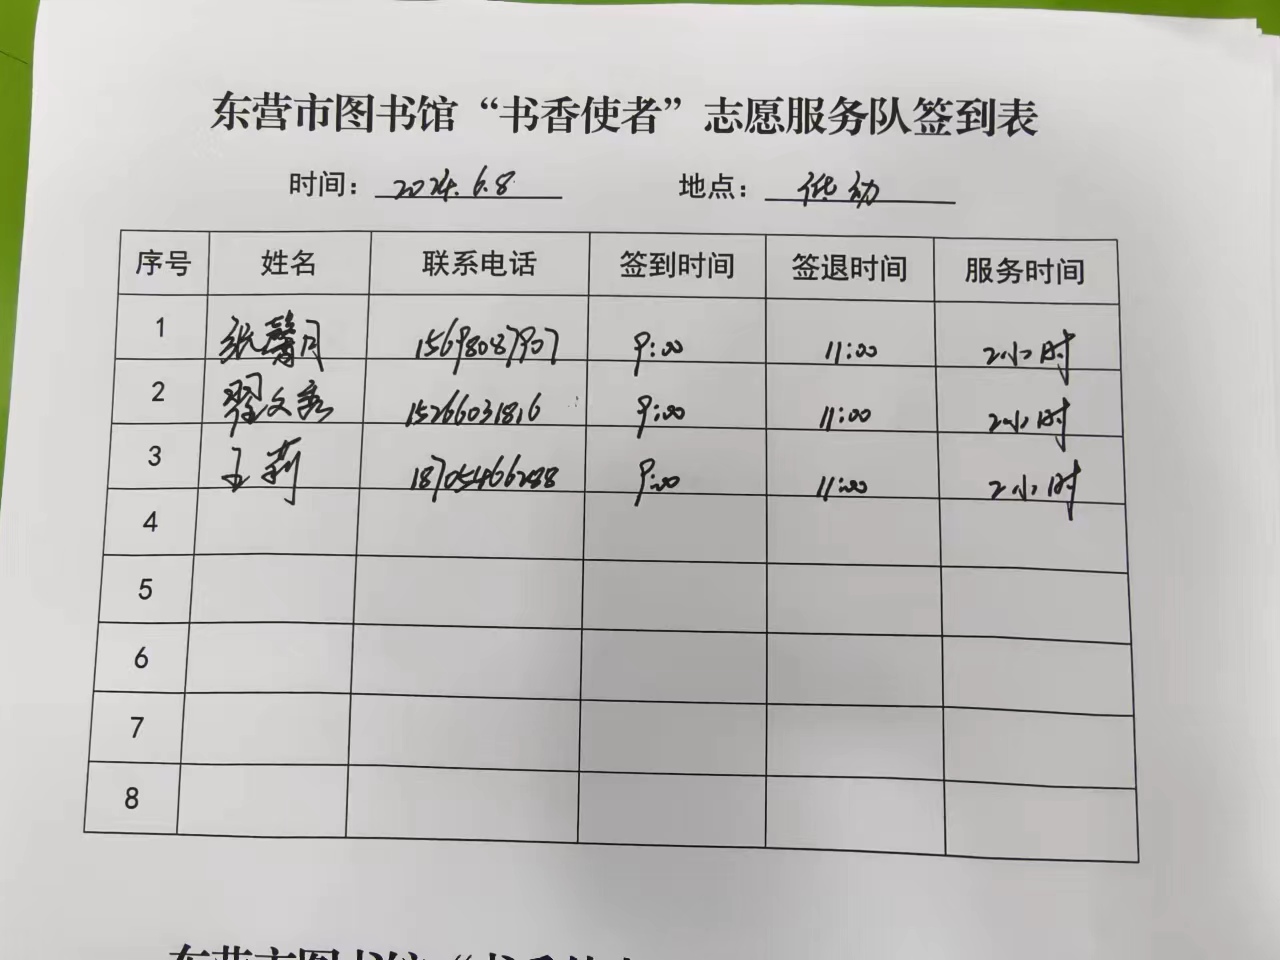 东营市图书馆“书香使者”志愿服务队签到表
时间： 2024.6.8 地点： 低幼
序号 姓名 联系电话 签到时间 签退时间 服务时间
1 张馨月 15698087907 9:00 11:00 2小时
2 翟文秀 15266031816 9:00 11:00 2小时
3 王莉 18705466288 9:00 11:00 2小时
4
5
6
7
8
东营市图书馆“书香使者